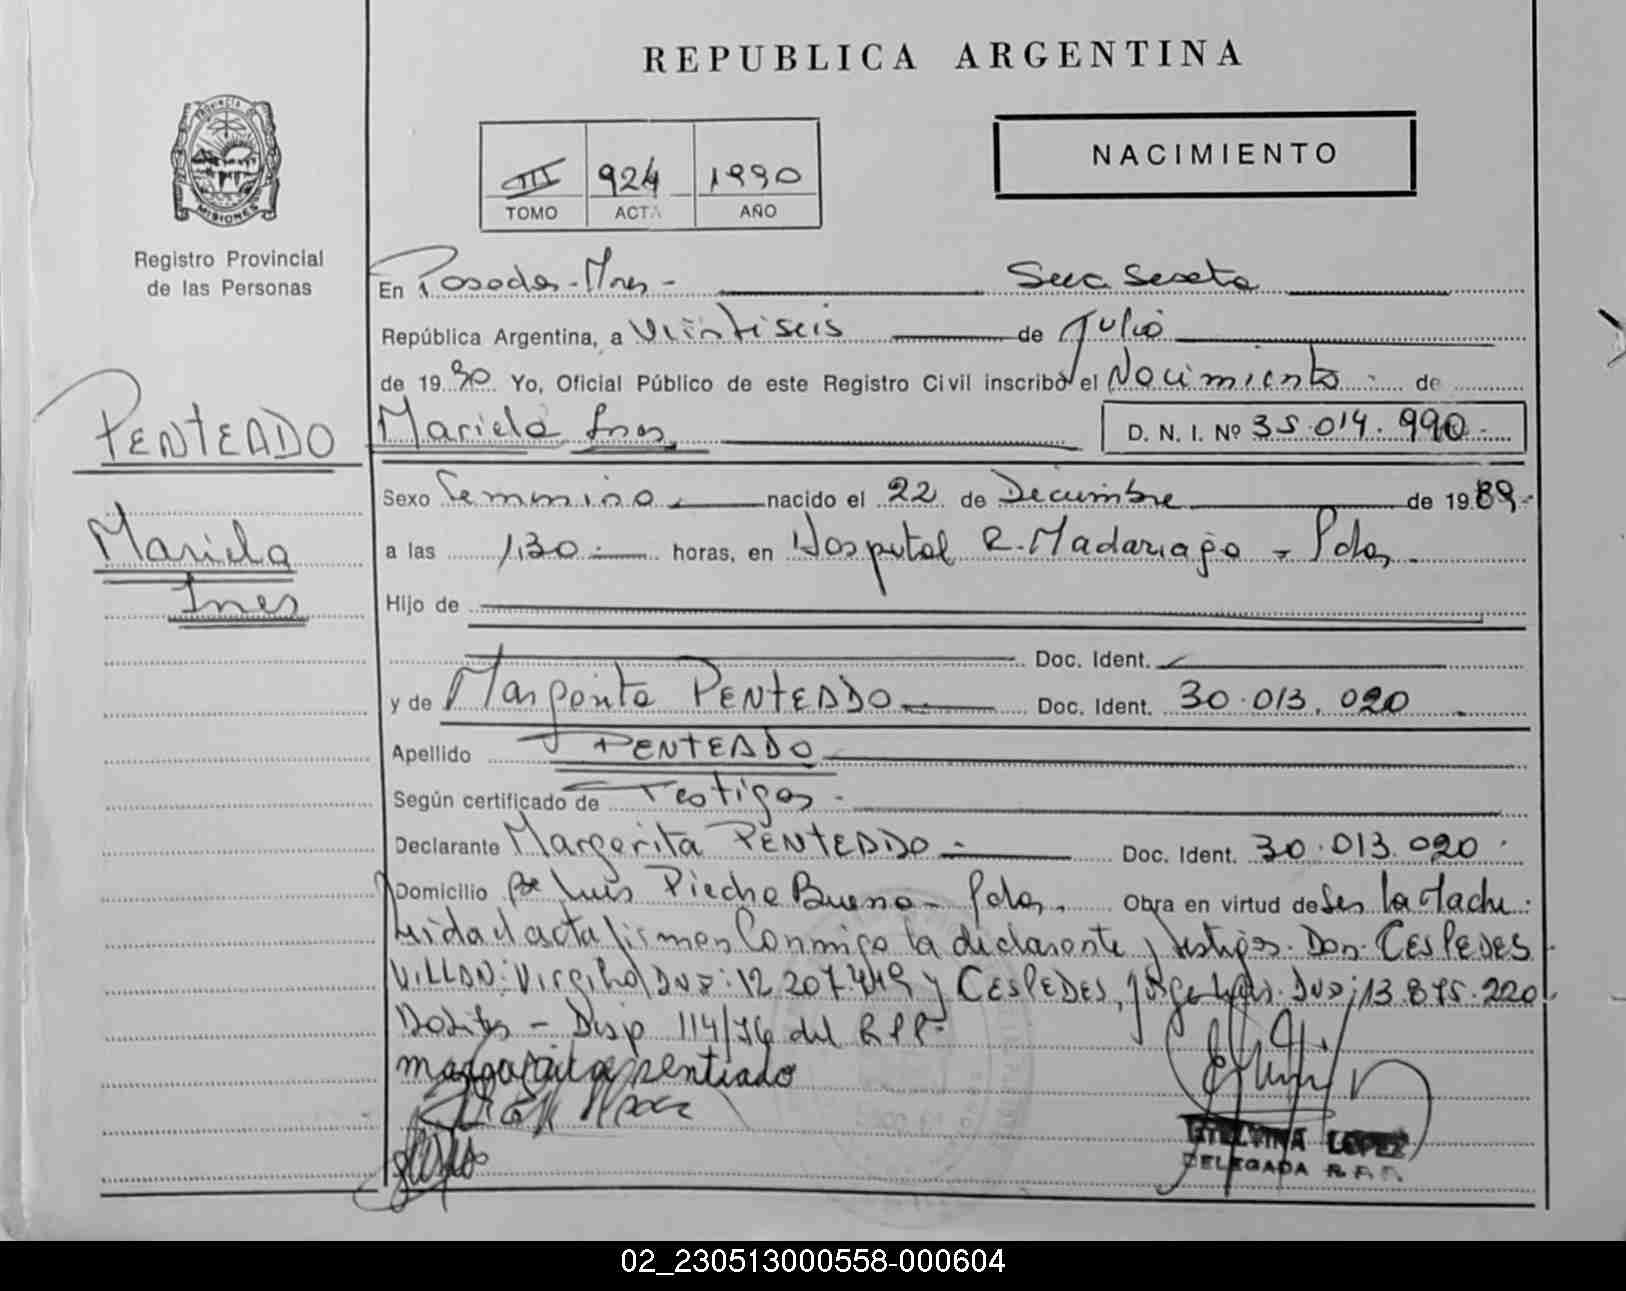 REPUBLICA ARGENTINA
PROVINCIA DE
MISIONES
Registro Provincial
de las Personas
III 924 1990
TOMO ACTA AÑO
NACIMIENTO
En Posadas - Mnes - Secc Sexta
República Argentina, a Veintiseis de Julio
de 1990 Yo, Oficial Público de este Registro Civil inscribo el Nacimiento de
PENTEADO
Mariela Ines
Mariela Ines D. N. I. Nº 35.014.990
Sexo Femenino nacido el 22 de Deciembre de 1989
a las 1,30 horas, en Hospital R. Madariaga - Pdas
Hijo de
Doc. Ident.
y de Margarita PENTEADO Doc. Ident. 30.013.020
Apellido PENTEADO
Según certificado de Testigos
Declarante Margarita PENTEADO Doc. Ident. 30.013.020
Domicilio Luis Piedra Buena - Pdas. Obra en virtud de Ser la Madre
Leida el acta firman Conmigo la declarante y testigos Don CESPEDES
Virgilio DNI: 12.207.449 y CESPEDES, Jorge Luis DNI: 13.875.220
Disp 114/76 del RPP
margarita pentiado
ETELVINA LOPEZ
DELEGADA R.P.P.
02_230513000558-000604